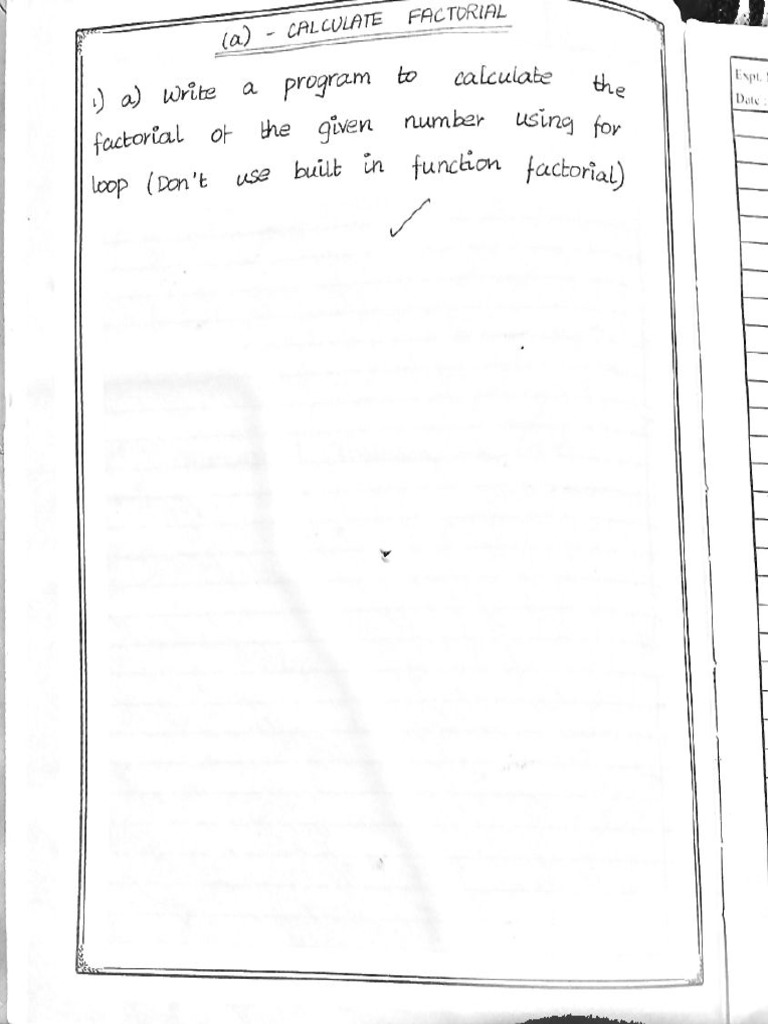 (a) - CALCULATE FACTORIAL
1) a) Write a program to calculate the
factorial of the given number using for
loop (Don't use built in function factorial)
Expt.
Date :